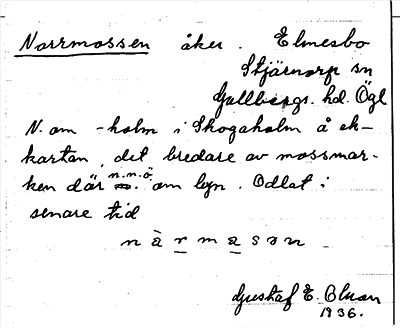 Norrmossen åker. Elmesbo
Stjärnorp sn
Gullbergs. hd. Ögl
N. om -holm i Skogaholm å ek-
kartan, det bredare av mossmar-
ken där n.n.ö. om byn. Odlat i
senare tid
n à r m a s ə n
Gustaf E. Olman
1936.